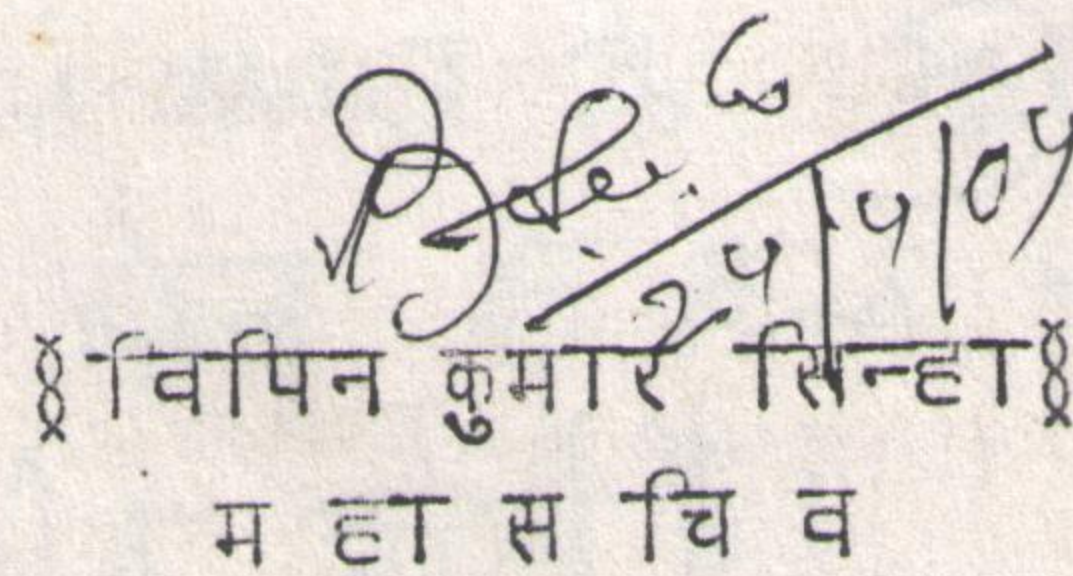 २५/५/०५
विपिन कुमार सिन्हा
म हा स चि व